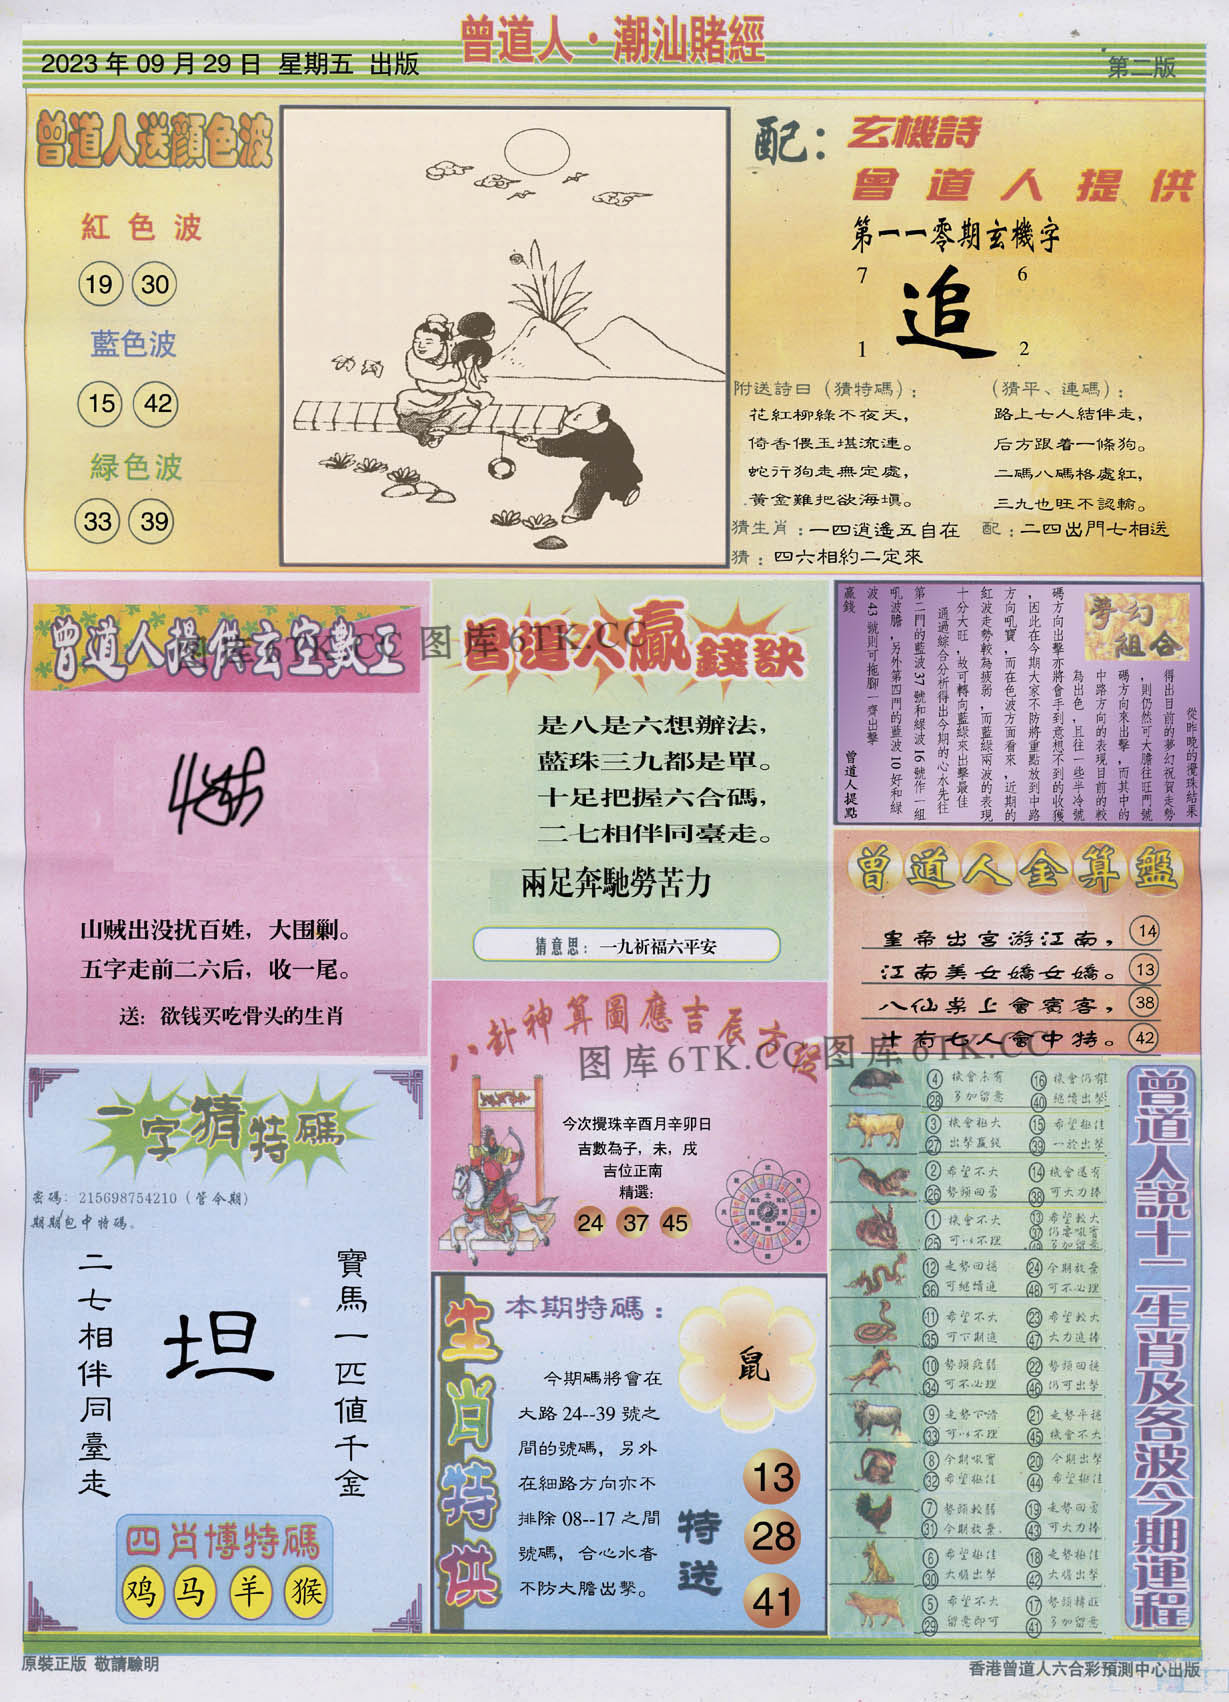 曾道人·潮汕賭經
2023 年 09 月 29 日 星期五 出版
第二版
曾道人送顏色波
紅色波
19 30
藍色波
15 42
緑色波
33 39
配：
玄機詩
曾道人提供
第一一零期玄機字
7 6
追
1 2
附送詩曰（猜特碼）：
花紅柳綠不夜天，
倚香偎玉堪流連。
蛇行狗走無定處，
黃金難把欲海填。
（猜平、連碼）：
路上七人結伴走，
后方跟着一條狗。
二碼八碼格處紅，
三九也旺不認輸。
猜生肖：一四逍遙五自在
配：二四出門七相送
猜：四六相約二定來
曾道人提供玄空數王
山贼出没扰百姓，大围剿。
五字走前二六后，收一尾。
送：欲钱买吃骨头的生肖
曾道人贏錢訣
是八是六想辦法，
藍珠三九都是單。
十足把握六合碼，
二七相伴同臺走。
兩足奔馳勞苦力
猜意思：一九祈福六平安
夢幻組合
從昨晚的攪珠結果
得出目前的夢幻祝賀走勢
，則仍然可大膽往旺門號
碼方向來出擊，而其中的
中路方向的表現目前的較
為出色，且往一些半冷號
碼方向出擊亦將會手到意想不到的收獲
，因此在今期大家不防將重點放到中路
方向吼寶，而在色波方面看來，近期的
紅波走勢較為疲弱，而藍綠兩波的表現
十分大旺，故可轉向藍綠來出擊最佳
通過綜合分析得出今期的心水先往
第二門的藍波 37 號和綠波 16 號作一組
吼波膽，另外第四門的藍波 10 好和綠
波 43 號則可拖腳一齊出擊
贏錢
曾道人提點
曾道人金算盤
皇帝出宮游江南， 14
江南美女嬌女嬌。 13
八仙桌上會賓客， 38
十有七人會中特。 42
八卦神算圖應吉辰方位
今次攪珠辛酉月辛卯日
吉數為子，未，戌
吉位正南
精選：
24 37 45
一字猜特碼
密碼：215698754210（管今期）
期期包中特碼。
寶馬一匹值千金
坦
二七相伴同臺走
四肖博特碼
鸡 马 羊 猴
生肖特供
本期特碼：
鼠
今期碼將會在
大路 24--39 號之
間的號碼，另外
在細路方向亦不
排除 08--17 之間
號碼，合心水者
不防大膽出擊。
特送
13
28
41
曾道人説十二生肖及各波今期運程
4 機會未有 16 機會仍有
28 多加留意 40 繼續出擊
3 機會極大 15 希望極佳
27 出擊贏錢 39 一於出擊
2 希望不大 14 機會還有
26 勢頭回勇 38 可大力捧
1 機會不大 13 希望較大
25 可以不理 37 仍要吼實
49 多加留意
12 走勢回穩 24 今期放棄
36 可繼續追 48 可不必理
11 希望不大 23 希望較大
35 可下期追 47 大力追捧
10 勢頭疲弱 22 勢頭回穩
34 可不必理 46 仍可出擊
9 走勢下滑 21 走勢平穩
33 可以不理 45 機會不大
8 今期吼實 20 今期出擊
32 希望極佳 44 希望極佳
7 勢頭較弱 19 走勢回勇
31 今期放棄 43 可大力捧
6 希望極佳 18 走勢極佳
30 大膽出擊 42 大膽出擊
5 希望不大 17 勢頭轉旺
29 留意即可 41 多加留意
原裝正版 敬請驗明
香港曾道人六合彩預測中心出版
图库 6TK.CC 图库 6TK.CC
图库 6TK.CC 图库 6TK.CC